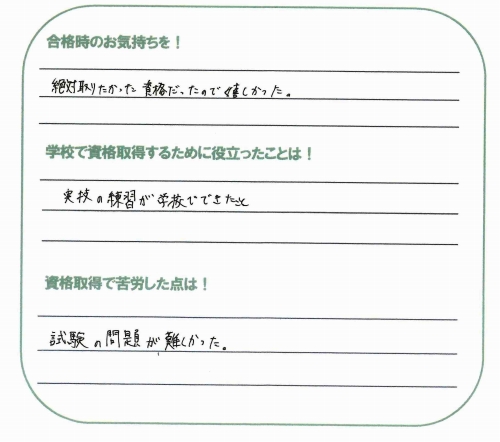 合格時のお気持ちを！
絶対取りたかった資格だったので嬉しかった。
学校で資格取得するために役立ったことは！
実技の練習が学校でできたこと
資格取得で苦労した点は！
試験の問題が難しかった。